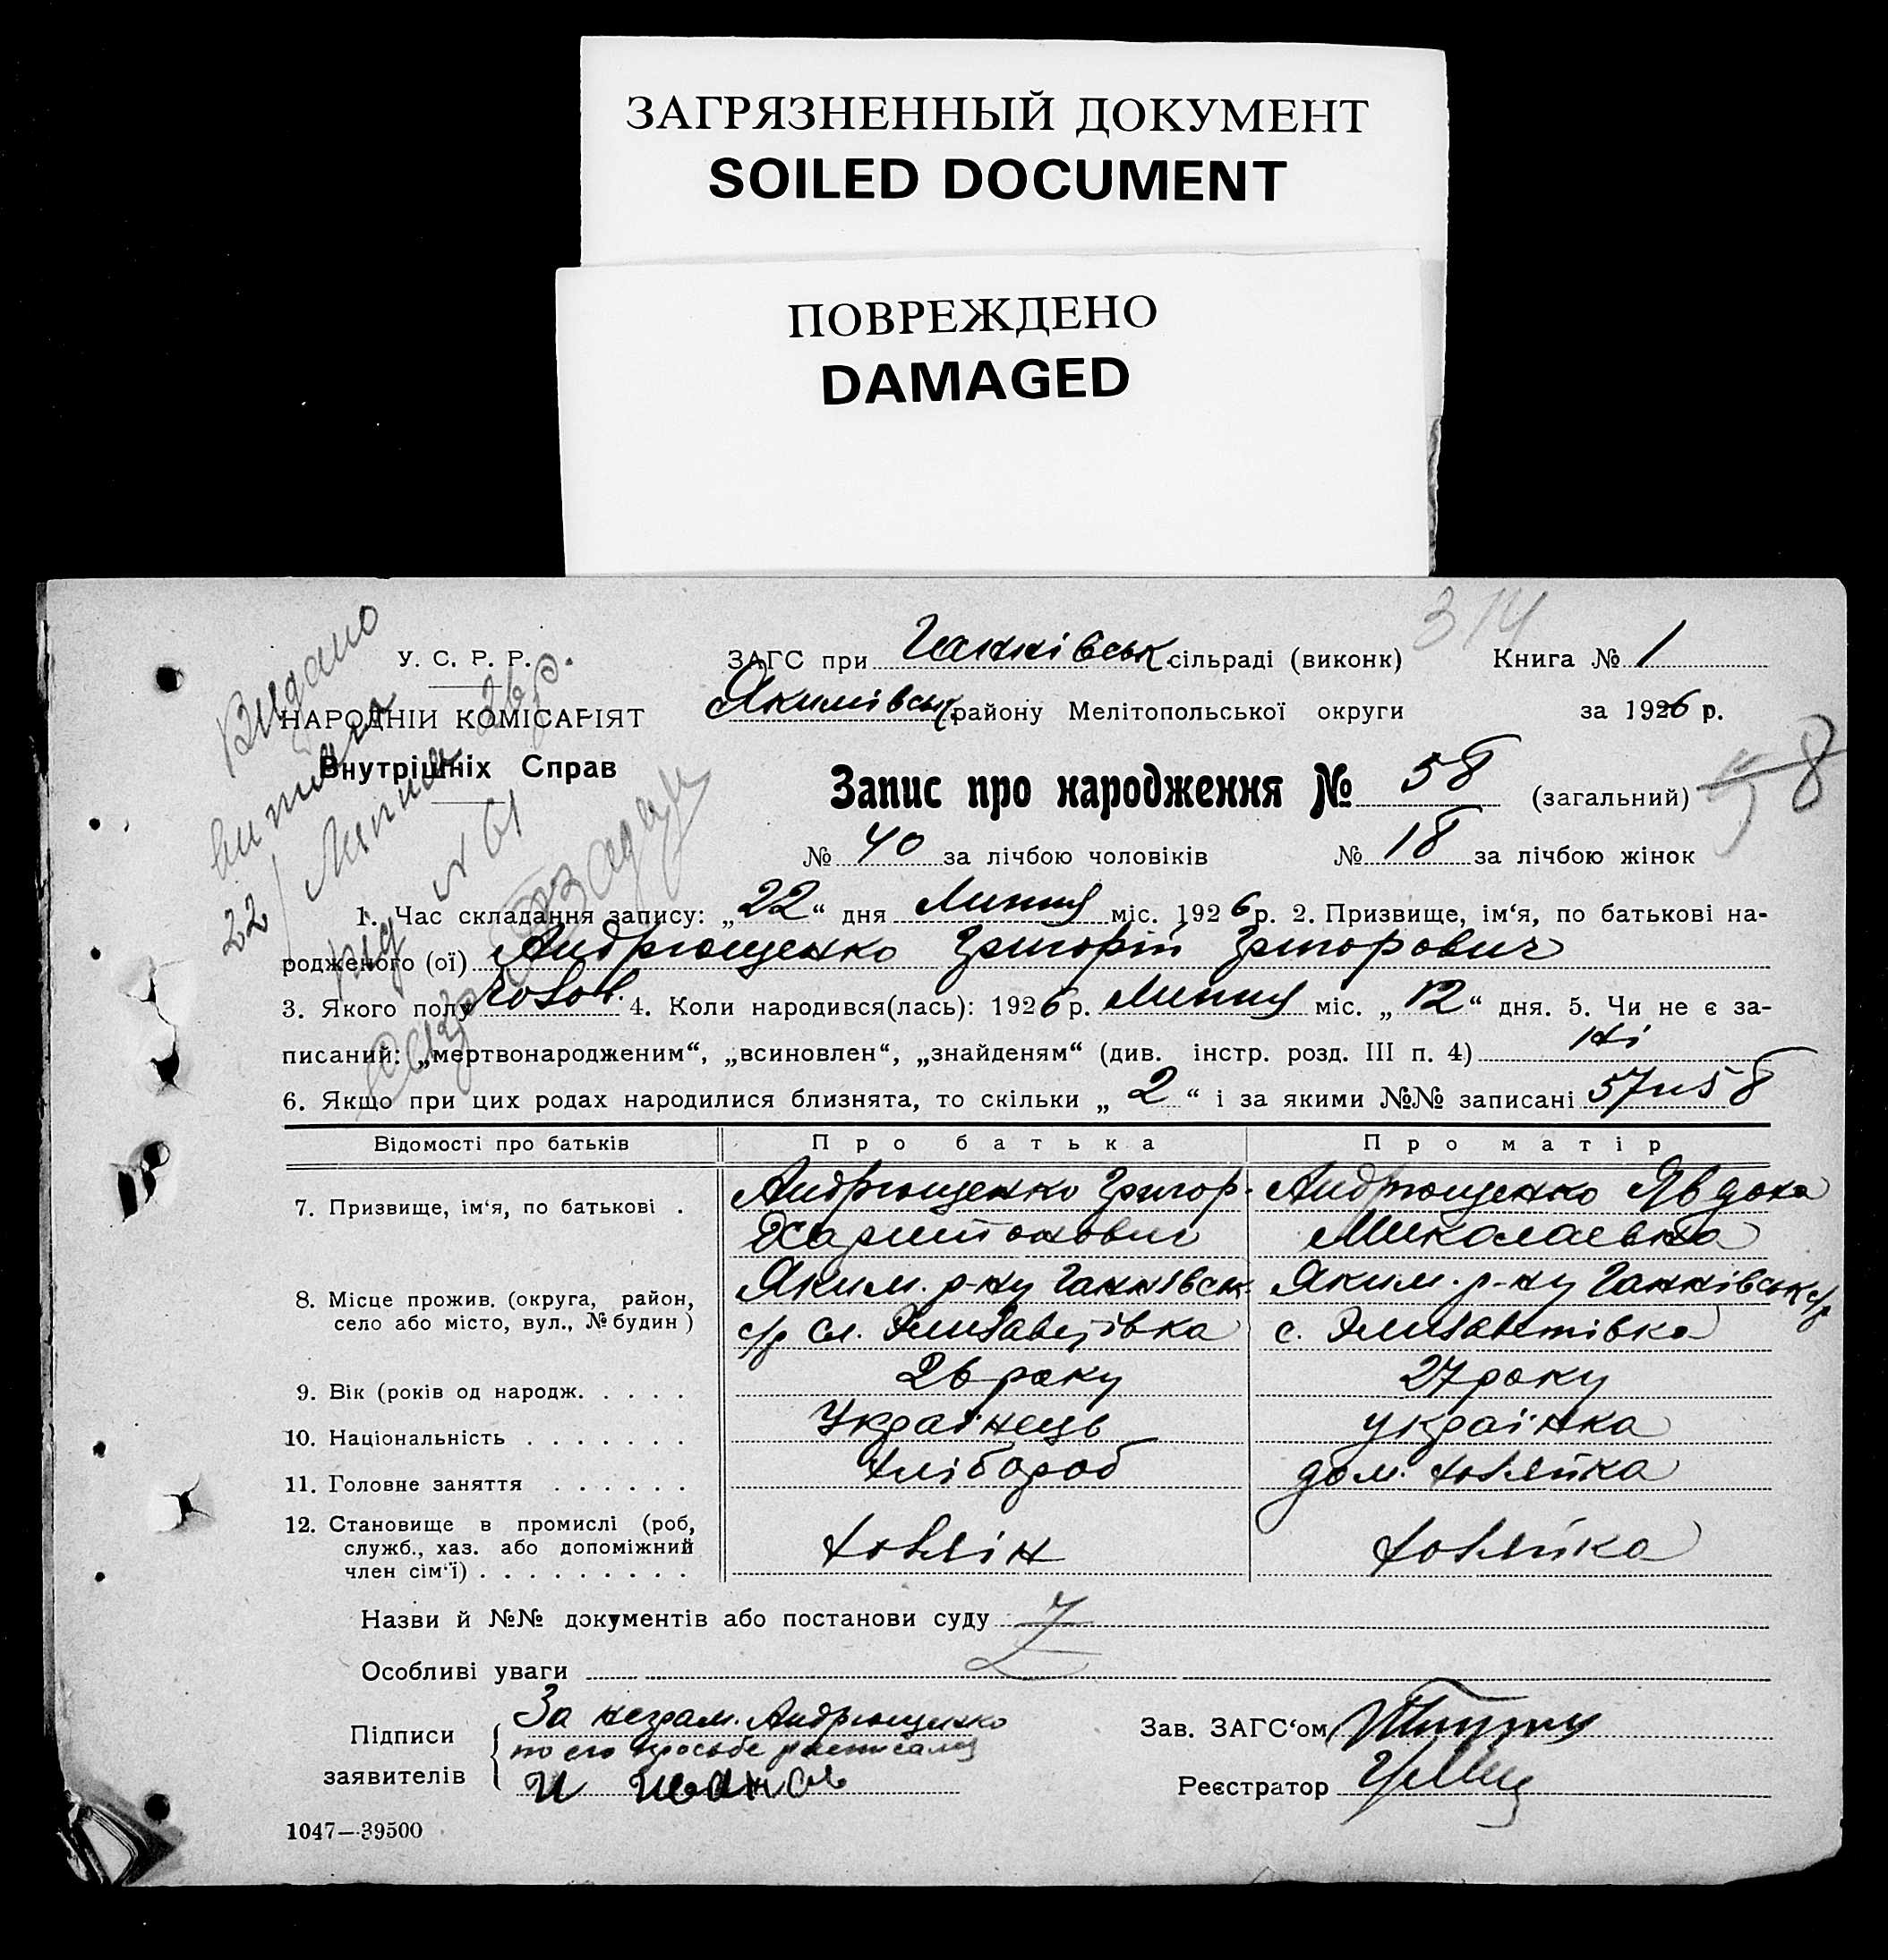 ЗАГРЯЗНЕННЫЙ ДОКУМЕНТ
SOILED DOCUMENT
ПОВРЕЖДЕНО
DAMAGED
314
У. С. Р. Р.
НАРОДНІЙ КОМІСАРІЯТ
Внутрішніх Справ
Видано
витяга
22/Липня 26 р.
під № 61
ЗАГС при Ганнівськ сільраді (виконк) Книга № 1
Якимівськ району Мелітопольської округи за 1926 р.
Запис про народження № 58 (загальний) 58
№ 40 за лічбою чоловіків № 18 за лічбою жінок
1. Час складання запису: „22“ дня Липня міс. 1926 р. 2. Призвище, ім‘я, по батькові на-
родженого (ої) Андрющенко Григорій Григорович
3. Якого полу чолов. 4. Коли народився(лась): 1926 р. Липня міс. „12“ дня. 5. Чи не є за-
писаний: „мертвонародженим“, „всиновлен“, „знайденям“ (див. інстр. розд. III п. 4) Ні
6. Якщо при цих родах народилися близнята, то скільки „2“ і за якими №№ записані 57 и 58
Відомості про батьків Про батька Про матір
7. Призвище, ім‘я, по батькові . Андрющенко Григор. Харитонович Андрющенко Явдоха Миколаевна
8. Місце прожив. (округа, район, Яким. р-ну Ганнівськ. Яким. р-ну Ганнівськ с/р
село або місто, вул., № будин) с/р сл. Элизаветівка с. Элизаветівка
9. Вік (років од народж. . . . . 26 року 27 року
10. Національність . . . . . . . Українець українка
11. Головне заняття . . . . . . Хлібороб дом. хозяйка
12. Становище в промислі (роб,
служб., хаз. або допоміжний хозяін хозяйка
член сім‘ї) . . . . . . . . .
Назви й №№ документів або постанови суду
Особливі уваги
Підписи
заявителів
За неграм. Андрющенко
по его просьбе расписался
И Иванов
Зав. ЗАГС‘ом
Реєстратор
1047—39500